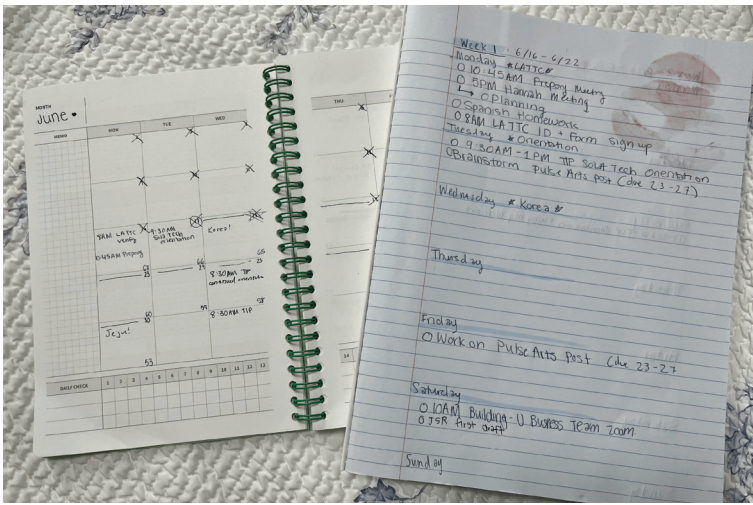 MONTH
June
MEMO
MON
TUE
WED
8AM LATTC
verify
10:45AM Prepory
9:30AM
SoLA Tech
orientation
Korea!
68
66
65
8:30AM TIP
60
59
58
8:30AM TIP
Jeju!
53
DAILY CHECK
1 2 3 4 5 6 7 8 9 10 11 12 13
THU
14
Week 1 - 6/16 - 6/22
Monday *LATTC*
10:45AM Prepory Meeting
5PM Hannah Meeting
↳ Planning
Spanish Homework
8AM LATTC ID + Form sign up
Tuesday *Orientation
9:30AM - 1PM TIP SoLA Tech orientation
Brainstorm Pulse Arts post (due 23-27)
Wednesday *Korea*
Thursday
Friday
Work on Pulse Arts Post (due 23-27
Saturday
10AM Building-U Business Team zoom
JSR first draft
Sunday